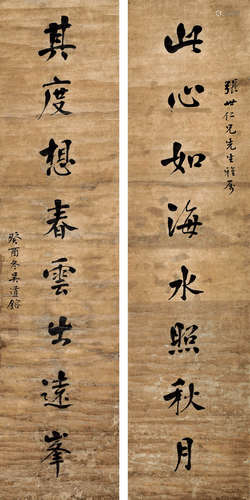 張世仁兄先生雅屬
此心如海水照秋月
其度想春雲出遠峯
癸酉冬吳道鎔